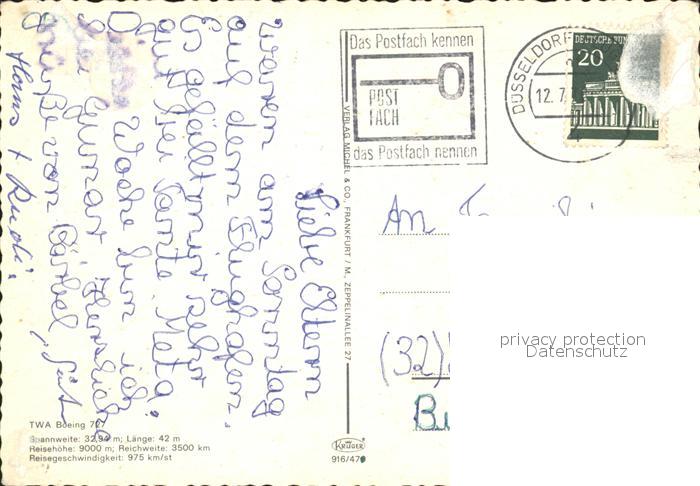 Das Postfach kennen
POST
FACH
das Postfach nennen
DÜSSELDORF
12. 7.
DEUTSCHE BUN
20
VERLAG MICHEL & CO., FRANKFURT / M., ZEPPELINALLEE 27
Liebe Eltern
waren am Sonntag
auf dem Flughafen.
Es gefällt mir sehr
gut bei Tante Meta.
Woche bin ich
bei Gunar. Herzliche
Grüße von Bärbel,
Horns + Rudi.
An
(32)
privacy protection
Datenschutz
TWA Boeing 727
Spannweite: 32,94 m; Länge: 42 m
Reisehöhe: 9000 m; Reichweite: 3500 km
Reisegeschwindigkeit: 975 km/st
KRÜGER
916/47